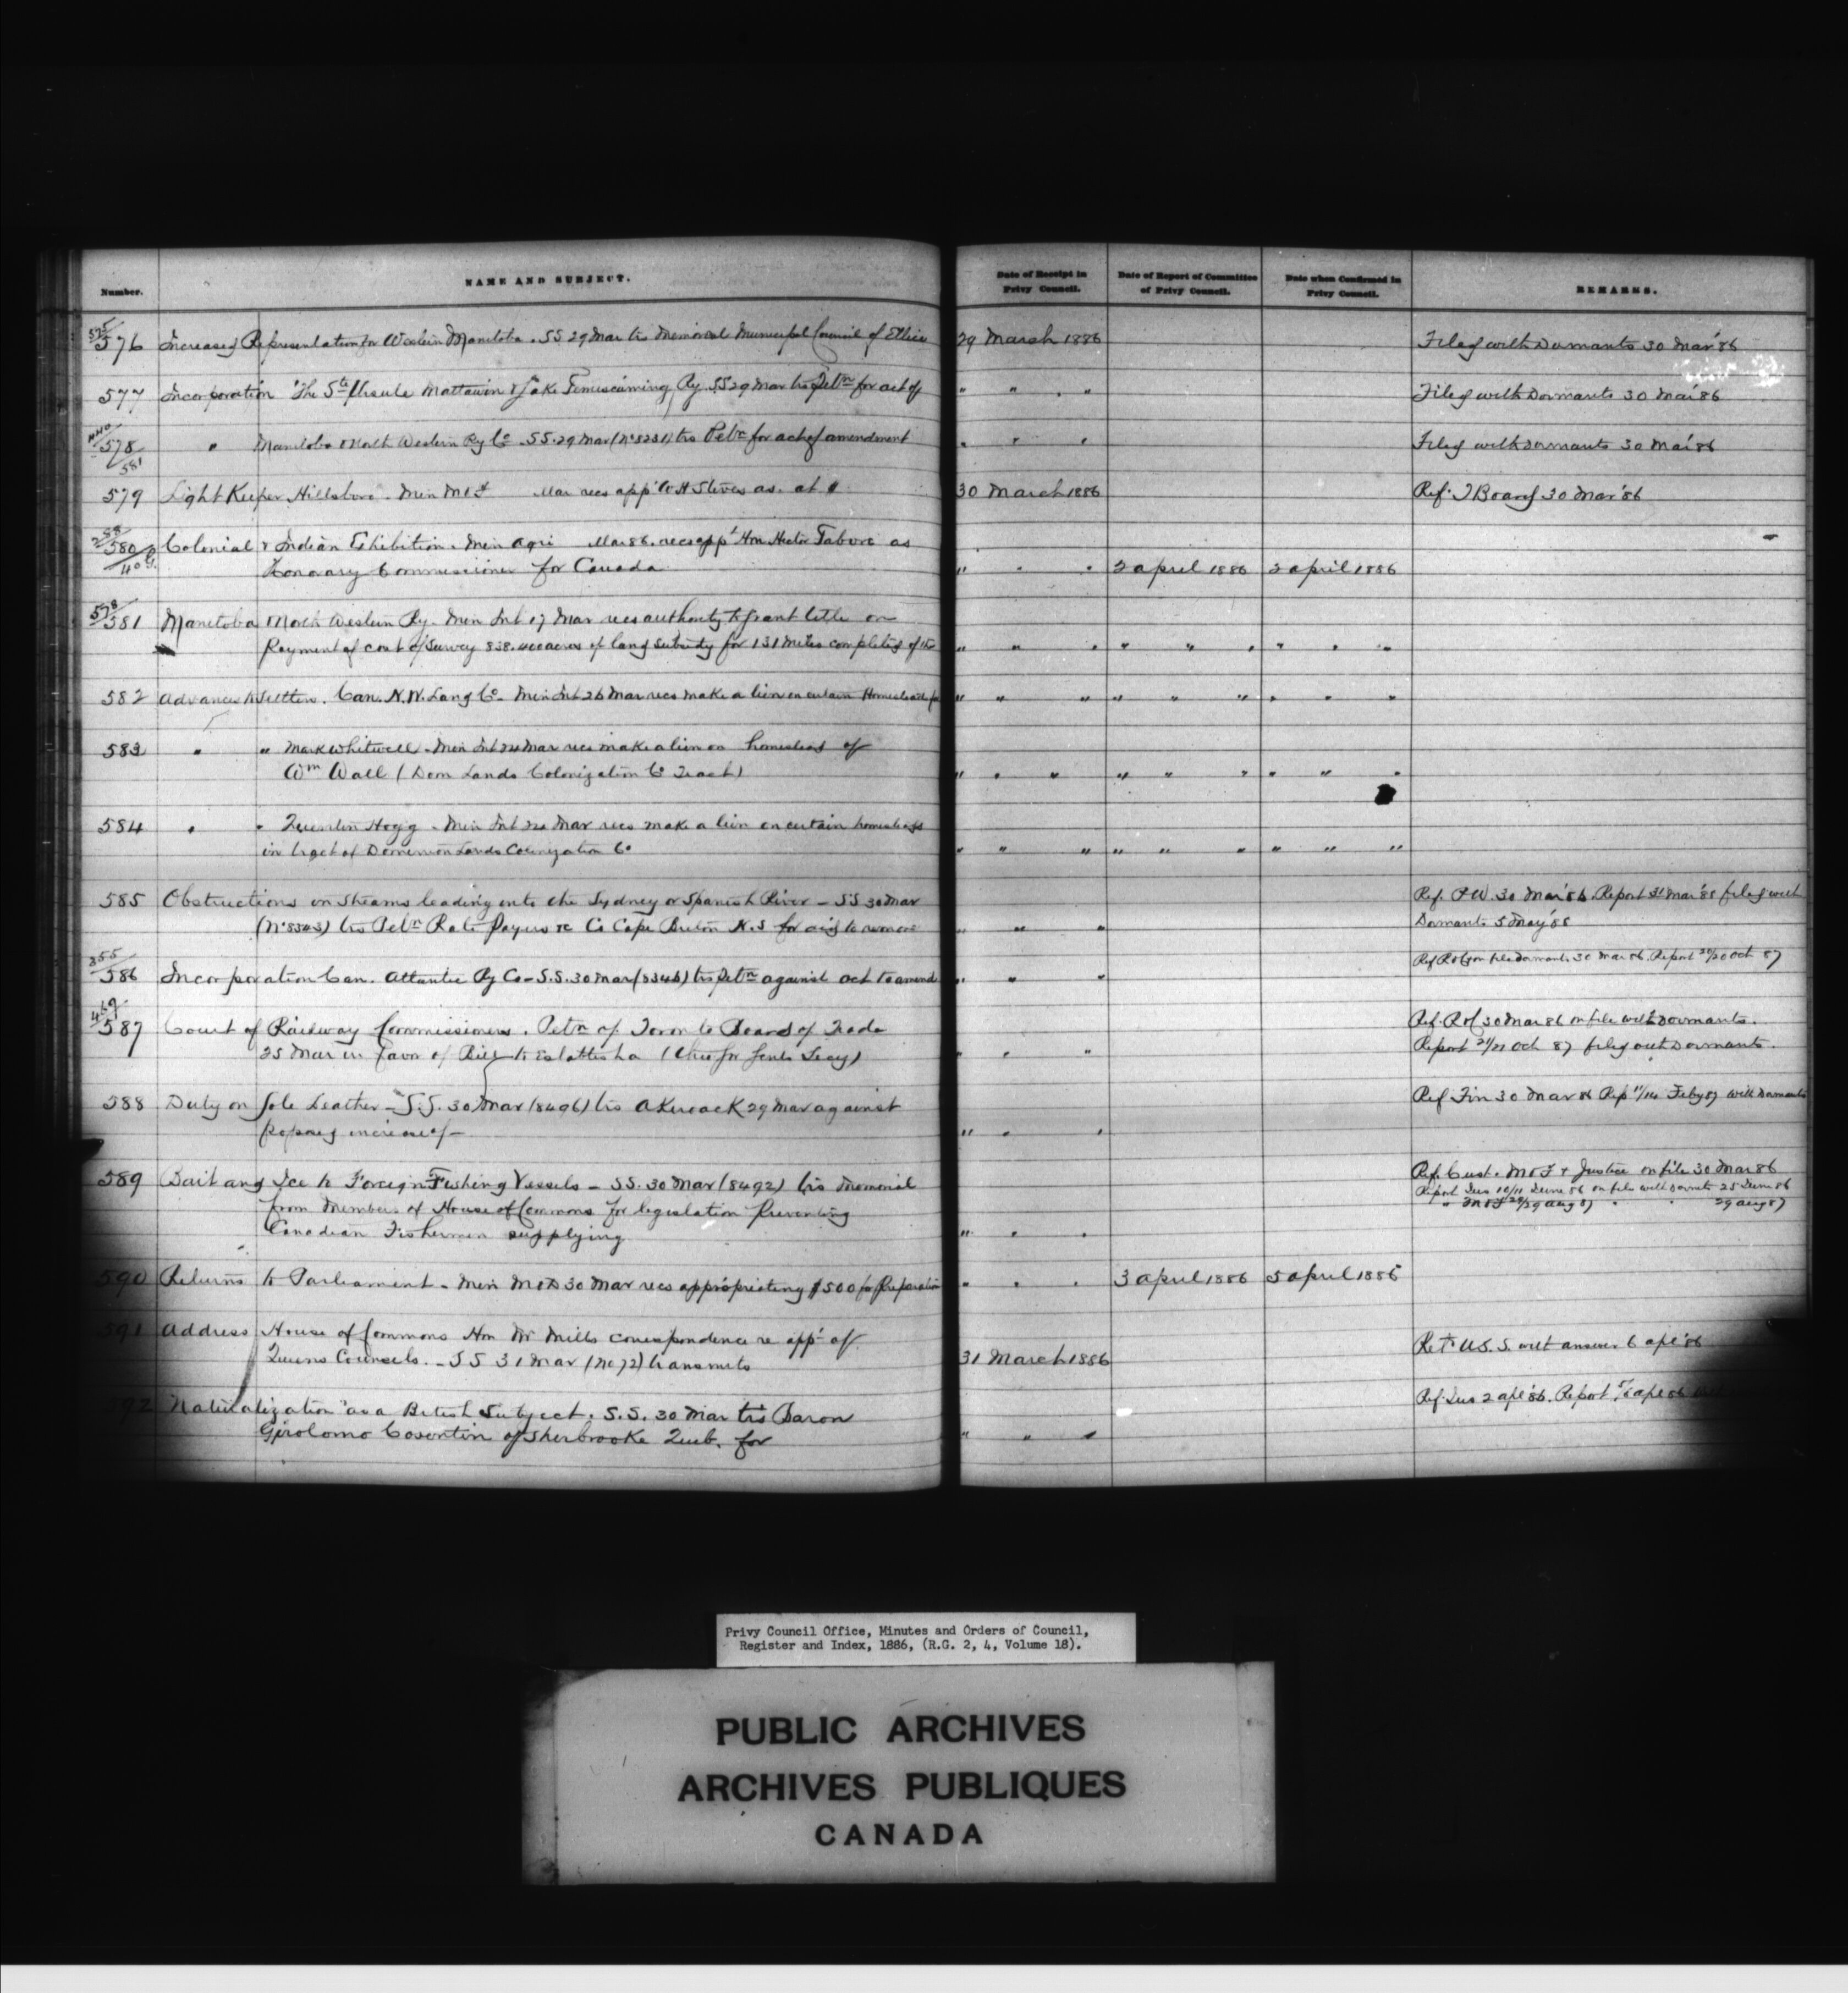 Number. NAME AND SUBJECT. Date of Receipt in Privy Council. Date of Report of Committee of Privy Council. Date when Confirmed in Privy Council. REMARKS.
575/576 Increased Representation for Western Manitoba. SS 29 Mar trs Memorial Municipal Council of Ellice 29 March 1886 Filed with Dormants 30 Mar '86
577 Incorporation "The Ste Ursule Mattawin & Lake Temiscaming Ry. SS 29 Mar trs Petn for act of " " " Filed with Dormants 30 Mar '86
440/578/581 " Manitoba & North Western Ry Co - SS. 29 Mar (No 8231) trs Petn for act of amendment " " " Filed with Dormants 30 Mar '86
579 Light Keeper Hillsboro - Min M & F Mar recs appt W H Steves as. at $ 30 March 1886 Ref. T Board 30 Mar '86
580 Colonial & Indian Exhibition. Min Agri Mar 86. recs appt Hon Hector Fabre as
Honorary Commissioner for Canada " " " 2 April 1886 2 April 1886
578/581 Manitoba & North Western Ry. Min Int 17 Mar recs authority to grant title on
Payment of cost of Survey 838.400 acres of land subsidy for 131 miles completed of the " " " " " " " " "
582 Advances to Settlers. Can. N.W. Land Co - Min Int 26 Mar recs make a lien on certain Homesteads for " " " " " " " " "
583 " " Mark Whitwell - Min Int 24 Mar recs make a lien on homestead of
Wm Wall (Dom Lands Colonization Co Tract) " " " " " " " " "
584 " " Quentin Hogg - Min Int 24 Mar recs make a lien on certain homesteads
in tract of Dominion Lands Colonization Co " " " " " " " " "
585 Obstructions on Streams leading into the Sydney or Spanish River - S.S 30 Mar Ref. P.W. 30 Mar '86. Report 31 Mar '88 filed with
(No 8343) trs Petn Rate Payers &c Co Cape Breton N.S for aid to remove " " " Dormants 5 May '88
355/586 Incorporation Can. Atlantic Ry Co - S.S. 30 Mar (8346) trs Petn against act to amend " " " Ref R & C on file Dormants 30 Mar 86. Report 20 Oct 87
469/587 Court of Railway Commissioners. Petn of Toronto Board of Trade Ref. R & C 30 Mar 86 on file with Dormants.
25 Mar in favor of Bill to establish a (thro for Genls Secy) " " " Report 21/21 Oct 87 filed with Dormants.
588 Duty on Sole Leather - S.S. 30 Mar (8496) trs 29 Mar against Ref Fin 30 Mar 86 Rep 11/14 Feby 87 with Dormants
proposed increase of - " " "
589 Bait and Ice to Foreign Fishing Vessels - SS. 30 Mar (8492) trs Memorial Ref. Cust. M & F & Justice on file 30 Mar 86
from Members of House of Commons for legislation Preventing Report Jus 10/11 June 86 on file with Dormts 25 June 86
Canadian Fishermen supplying " " " " M & F 29/29 Aug 87 " " 29 Aug 87
590 Returns to Parliament - Min 30 Mar recs appropriating $500 for Preparation " " " 3 April 1886 5 April 1886
591 Address House of Commons Hon Mr Mills correspondence re appt of
Queens Counsels. - SS 31 Mar (No 72) transmits 31 March 1886 Retd U.S.S. with answer 6 apl '86
592 Naturalization as a British Subject. S.S. 30 Mar trs Baron Ref. Jus 2 apl '86. Report 5/6 apl 86
Girolomo Cosentin of Sherbrooke Queb. for " " "
Privy Council Office, Minutes and Orders of Council,
Register and Index, 1886, (R.G. 2, 4, Volume 18).
PUBLIC ARCHIVES
ARCHIVES PUBLIQUES
CANADA